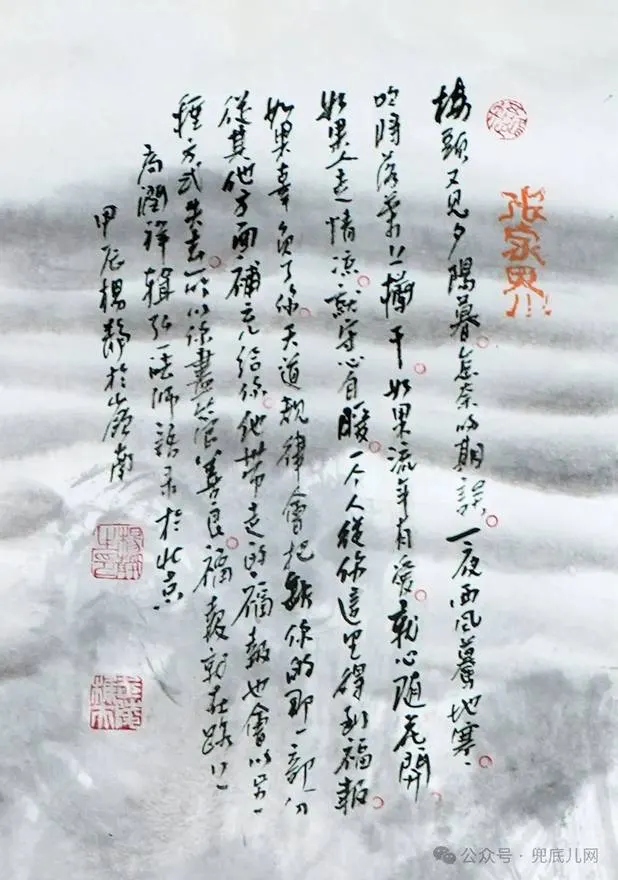 頭又見夕陽暮。怎奈期誤。一夜西風驀地寒、
吹將落葉上欄干。如果流年有愛。就心隨花開。
如果人走情涼。就守心自暖。一个人從你這里得到福報。
如果辜負了你。天道規律會把缺你的那一部分
從其他方面補充給你。他帶走的福報也會以另一
種方式失去。所以你盡管善良。福報就在路上
高潤祥輯弘一法師語录於北京
甲辰楊靜於嶺南
张家界
公众号·兜底儿网